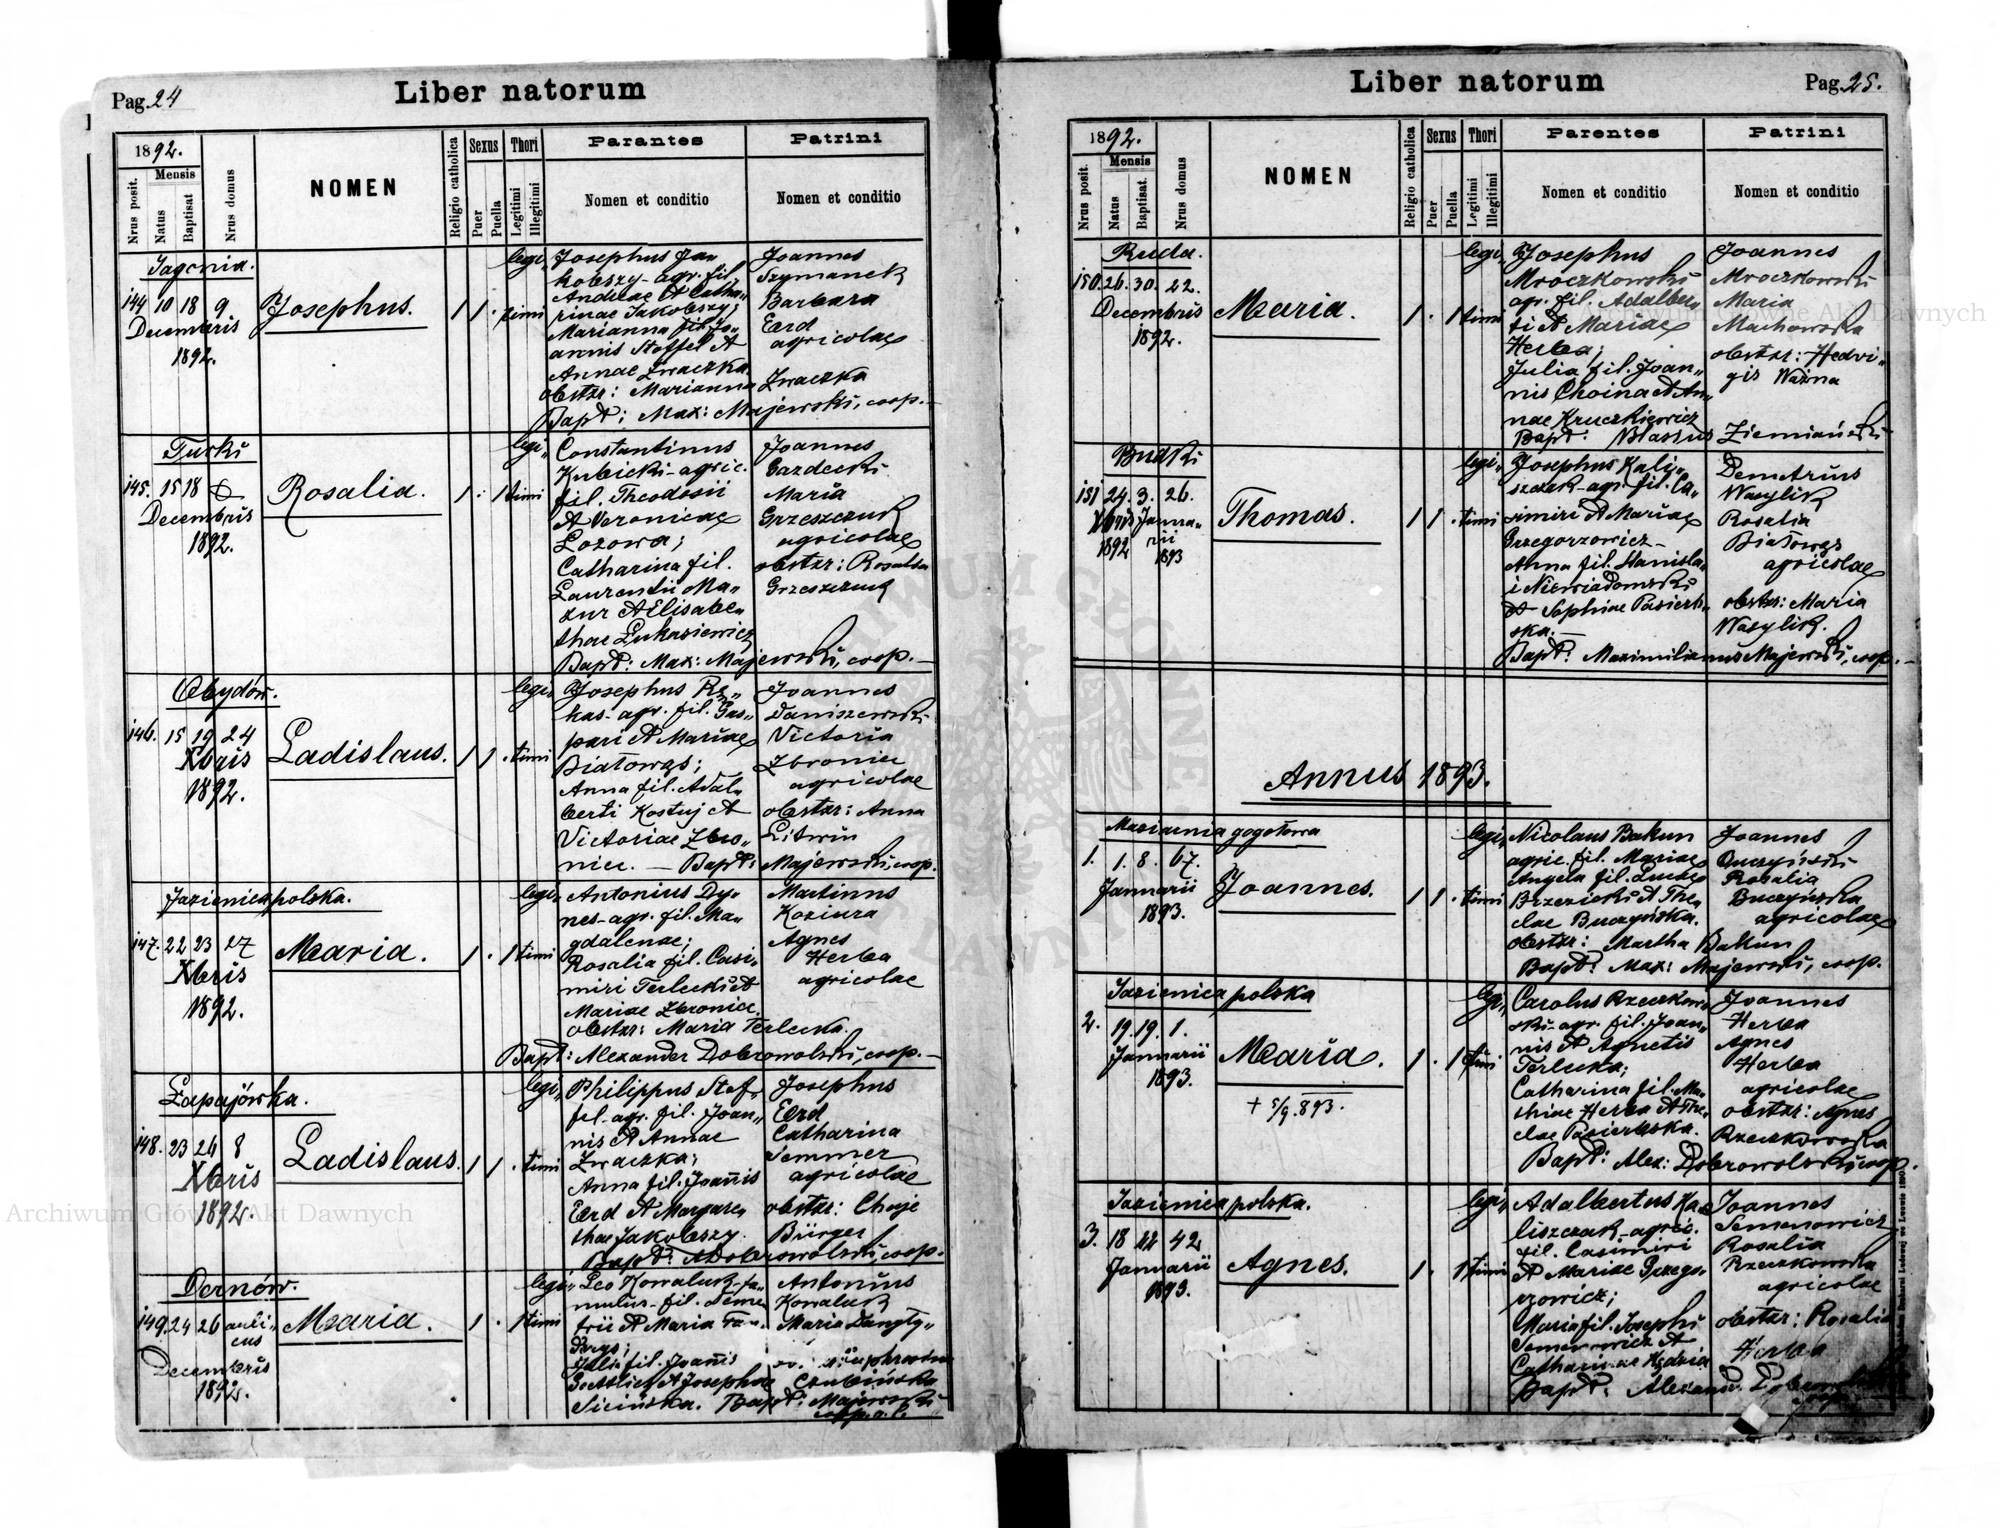 Pag. 24
Liber natorum
1892.
Mensis
Nrus posit.
Natus
Baptisat
Nrus domus
NOMEN
Religio catholica
Sexus
Puer
Puella
Thori
Legitimi
Illegitimi
Parantes
Nomen et conditio
Patrini
Nomen et conditio
Jagonia.
144 10 18 9
Decembris
1892.
Josephus.
1 1 . legi„
timi
Josephus Ja„
kobszy agr. fil.
Andreae et Catha„
rinae Jakobszy;
Marianna fil. Jo„
annis Stoffel et
Annae Zwaczka.
obstzr: Marianna Zwaczka
Bapt: Max: Majewski, coop.
Joannes
Szymanek
Barbara
Erd
agricolae
Turki
145. 15 18
Decembris
1892.
Rosalia.
1 . 1 legi„
timi
Constantinus
Kubicki-agric.
fil. Theodosii
et Veronicae
Lozowa;
Catharina fil.
Laurentii Ma„
zur et Elisabe„
thae Łukasiewicz
Bapt: Max: Majewski, coop.
Joannes
Gazdecki
Maria
Grzeszczuk
agricolae
obstzr: Rosalia
Grzeszczuk
Obydów.
146. 15 19 24
Xbris
1892.
Ladislaus.
1 1 . legi„
timi
kas- agr. fil. Gas„
pari et Mariae
Białowąs;
Anna fil. Adal„
berti Kostuj et
Victoriae Zbro„
niec. — Bapt: Majewski, coop.
Joannes
Daniszewski
Victoria
Zbroniec
agricolae
obstzr: Anna
Litwin
Jazienica polska.
147. 22 23 27
Xbris
1892.
Maria.
1 . 1 legi„
timi
Antonius Dy„
nes- agr. fil. Ma„
gdalenae;
Rosalia fil. Casi„
miri Terlecki et
Mariae Zbroniec.
obstzr: Maria Terlecka.
Bapt: Alexander Dobrowolski, coop.
Martinus
Koziura
Agnes
Herba
agricolae
Łapajówka.
148. 23 26 8
Xbris
1892.
Ladislaus.
1 1 . legi„
timi
Philippus Stof„
fel- agr. fil. Joan„
nis et Annae
Zwaczka;
Anna fil. Joannis
Erd et Margare„
thae Jakobszy.
Bapt: ADobrowolski, coop.
Josephus
Erd
Catharina
Semmer
agricolae
obstzr: Chaje
Bürger
Dernów.
149. 24 26 auli„
cus
Decembris
1892.
Maria.
1 . 1 legi„
timi
Leo Kowaluk-fa„
mulus- fil. Deme„
trii et Maria
Julia fil. Joannis
Gottlieb et Josephae
Sicińska. Bapt: Majewski
Antonius
Kowaluk
Maria
Czubińska
Pag. 25.
Liber natorum
1892.
Mensis
Nrus posit.
Natus
Baptisat.
Nrus domus
NOMEN
Religio catholica
Sexus
Puer
Puella
Thori
Legitimi
Illegitimi
Parentes
Nomen et conditio
Patrini
Nomen et conditio
Ruda.
150. 26. 30. 22.
Decembris
1892.
Maria.
1 . 1 legi„
timi
Josephus
Mroczkowski
agr. fil. Adalber„
ti et Mariae
Herba;
Julia fil. Joan„
nis Choina et An„
nae Kruczkiewicz
Bapt: Blasius Ziemiański
Joannes
Mroczkowski
Maria
Machowska
obstzr: Hedvi„
gis Ważna
Budki
151 24. 3. 26.
Xbris Janua„
rii
1892 1893
Thomas.
1 1 . legi„
timi
Josephus Kali„
szczak- agr. fil. Ca„
simiri et Mariae
Grzegorzowicz-
Anna fil. Stanisla„
i Niewiadomski
et Sophiae Pasierb„
ska.
Bapt: Maximilianus Majewski, coop.
Demetrius
Wasylik
Rosalia
Białowąs
agricolae
obstzr: Maria
Wasylik.
Annus 1893.
Maziarnia gogołowa
1. 1. 8. 67.
Januarii
1893.
Joannes.
1 1 . legi„
timi
Nicolaus Bakun
agric. fil. Mariae
Angela fil. Lucae
Brzezicki et The„
clae Buczyńska.
obstzr: Martha Bakun
Bapt: Max: Majewski, coop.
Joannes
Buczyński
Rosalia
Buczyńska
agricolae
Jazienica polska
2. 19. 19. 1.
Januarii
1893.
Maria.
+ 5/9.893.
1 . 1 legi„
timi
Carolus Rzeczkow„
ski- agr. fil. Joan„
nis et Agnetis
Terlecka;
Catharina fil. Ma„
thiae Herba et The„
clae Pasierbska.
Bapt: Alex: Dobrowolski, coop.
Joannes
Herba
Agnes
Herba
agricolae
obstzr: Agnes
Rzeczkowska
Jazienica polska.
3. 18 22 42
Januarii
1893.
Agnes.
1 . 1 legi„
timi
Adalbertus Ka„
liszczak- agric.
fil. Casimiri
et Mariae Grzego„
rzowicz;
Maria fil. Josephi
Semenowicz et
Catharinae Kędzia
Bapt: Alexand. Dobrowolski
Joannes
Semenowicz
Rosalia
Rzeczkowska
agricolae
obstzr: Rosalia
Herba
Archiwum Główne Akt Dawnych
Archiwum Główne Akt Dawnych